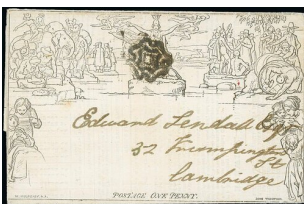 Edward Lendall Esqr
32 Trumpington
St
Cambridge
POSTAGE ONE PENNY.